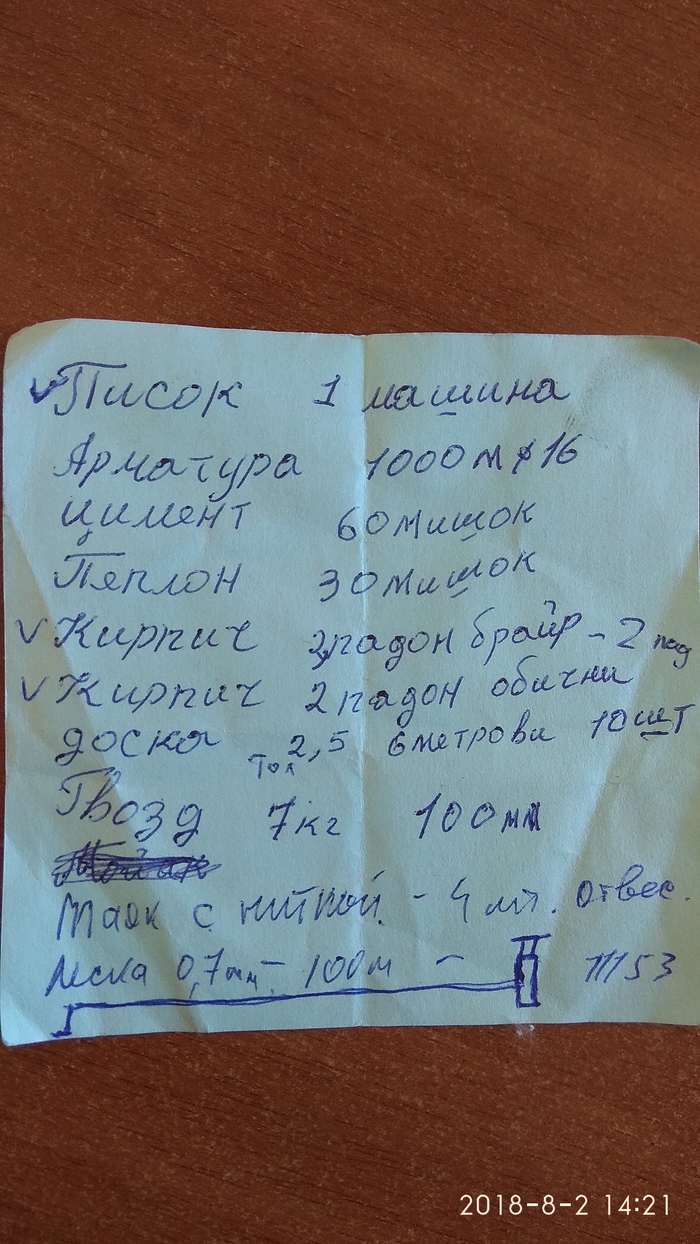 Писок 1 машина
Арматура 1000м ⌀16
цимент 60мишок
Пеплон 30мишок
Кирпич 2падон брайр - 2 пад
Кирпич 2падон обични
доска Тол 2,5 6метрови 10шт
Гвозд 7кг 100мм
Маяк с ниткой. - 4 шт. отвес.
леска 0,7мм - 100м -
2018-8-2 14:21